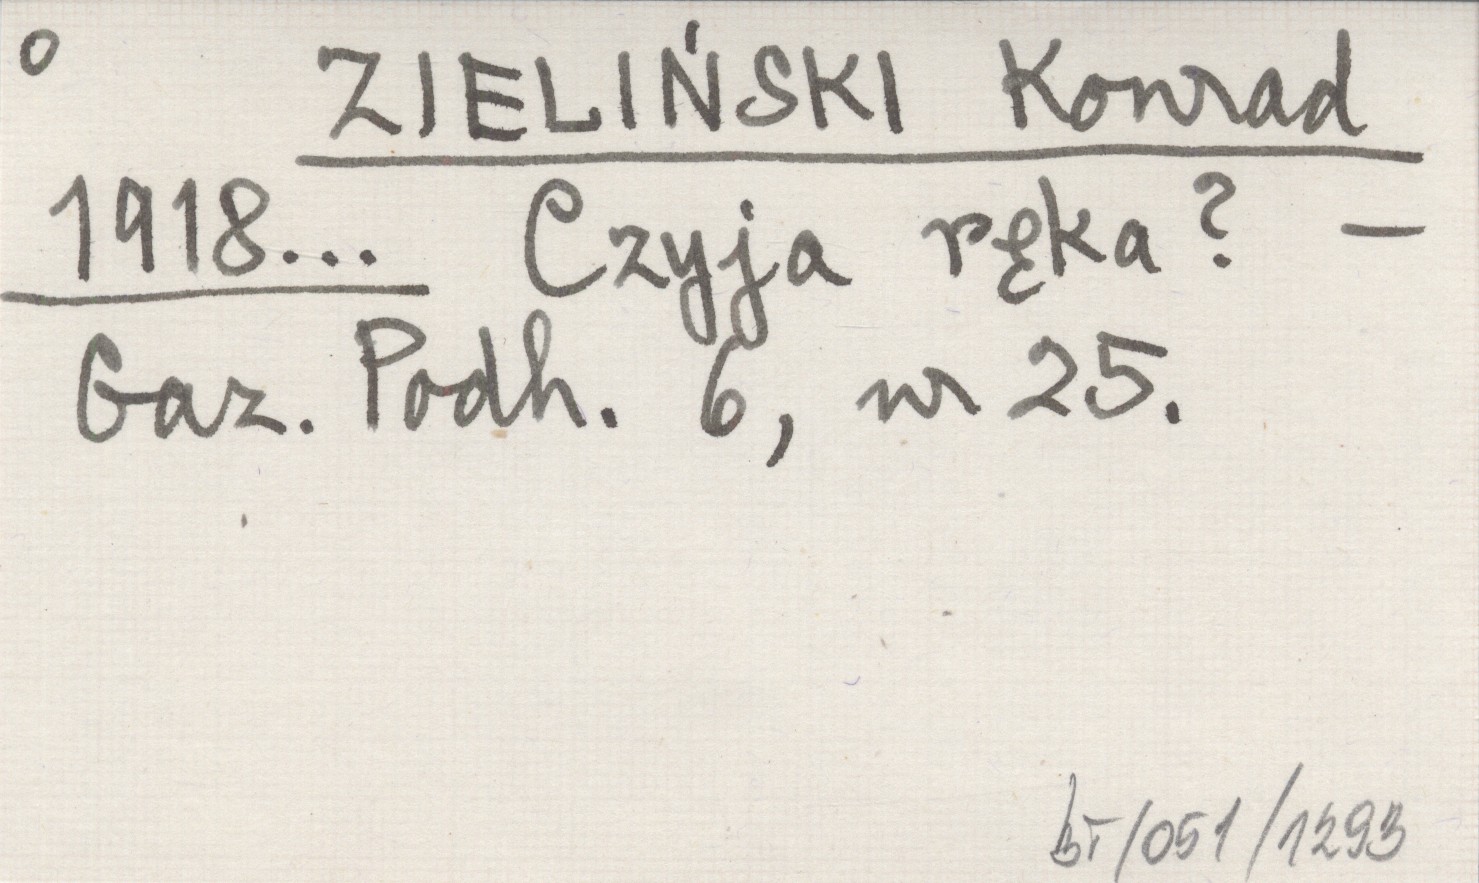 o ZIELIŃSKI Konrad
1918... Czyja ręka? –
Gaz. Podh. 6, nr 25.
bt/051/1293